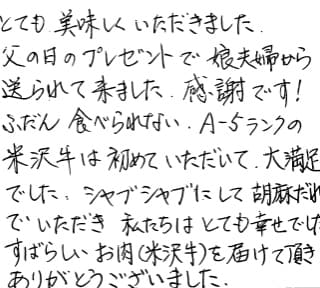 とても美味しくいただきました.
父の日のプレゼントで娘夫婦から
送られて来ました.感謝です!
ふだん食べられない.A-5ランクの
米沢牛は初めていただいて.大満足
でした.シャブシャブにして胡麻だれ
でいただき私たちはとても幸せでした
すばらしいお肉(米沢牛)を届けて頂き
ありがとうございました.